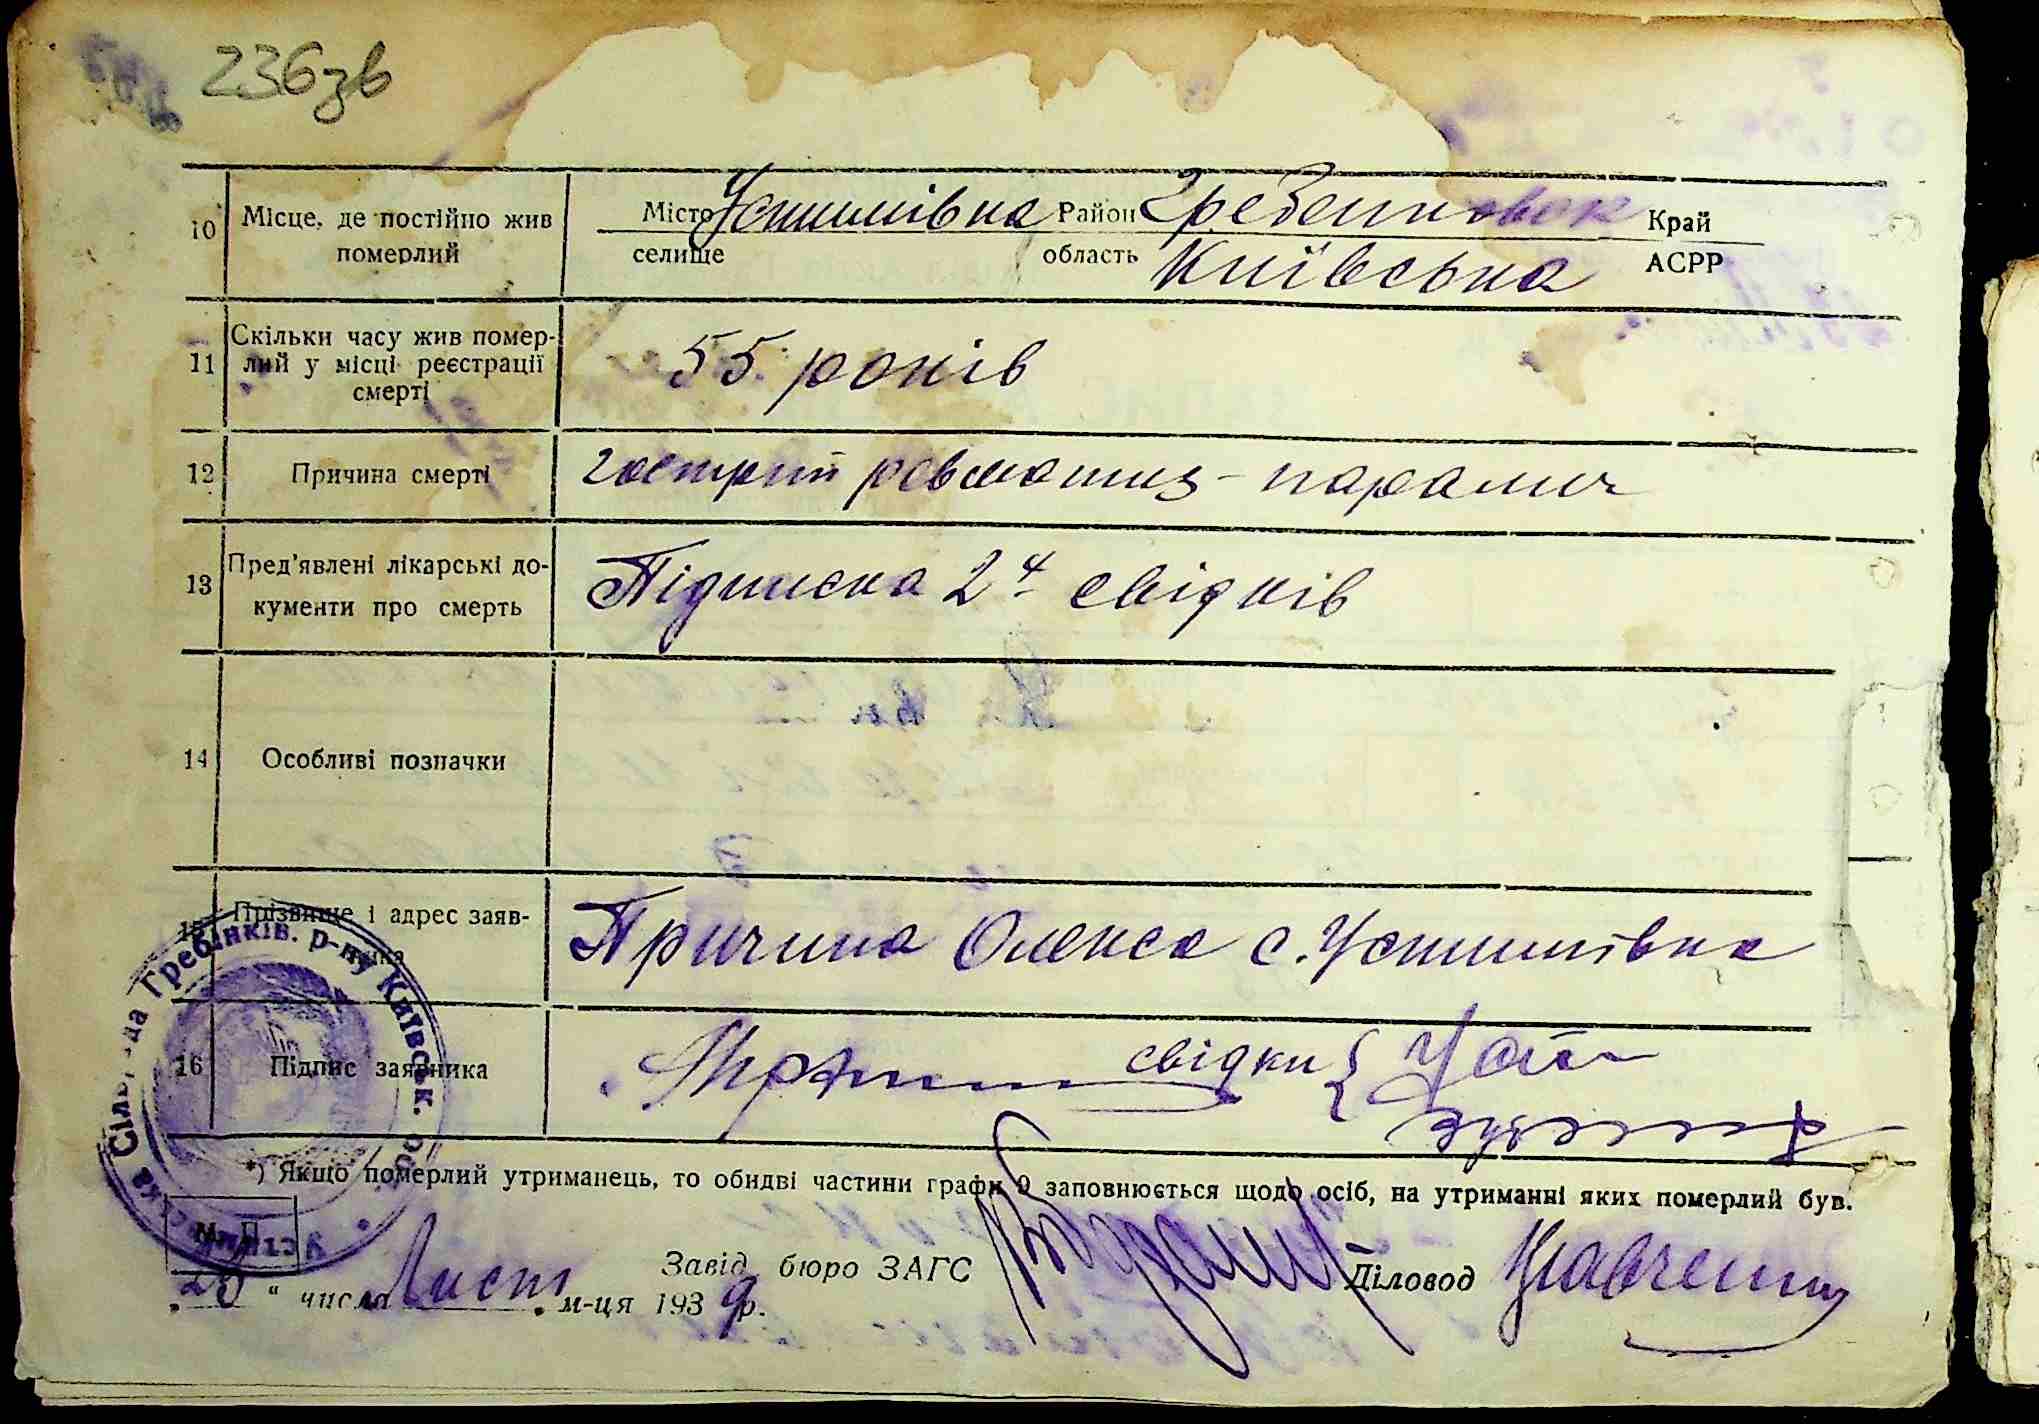 236зв
10 Місце, де постійно жив померлий
Місто Устимівка Район Гребенковск Край
селище область Київська АСРР
11 Скільки часу жив помер-
лий у місці реєстрації
смерті
55 років
12 Причина смерті гострий ревматиз - параліч
13 Пред'явлені лікарські до-
кументи про смерть
Підписка 2х свідків
14 Особливі позначки
15 Прізвище і адрес заяв-
ника
Причина Олекса с. Устимівка
16 Підпис заявника свідки {
*) Якщо померлий утриманець, то обидві частини графи 9 заповнюється щодо осіб, на утриманні яких померлий був.
М. П.
Завід. бюро ЗАГС Діловод Кравченко
" числа Лист. м-ця 1939 р.
Сільрада Гребінків. р-ну Київськ. обл.